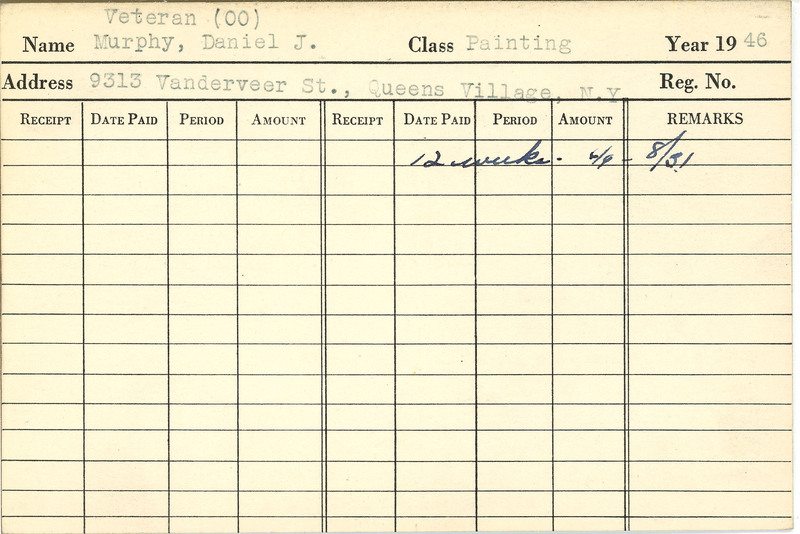 Veteran (OO)
Name Murphy, Daniel J. Class Painting Year 19 46
Address 9313 Vanderveer St., Queens Village, N.Y. Reg. No.
RECEIPT DATE PAID PERIOD AMOUNT RECEIPT DATE PAID PERIOD AMOUNT REMARKS
12 weeks - - 8/31